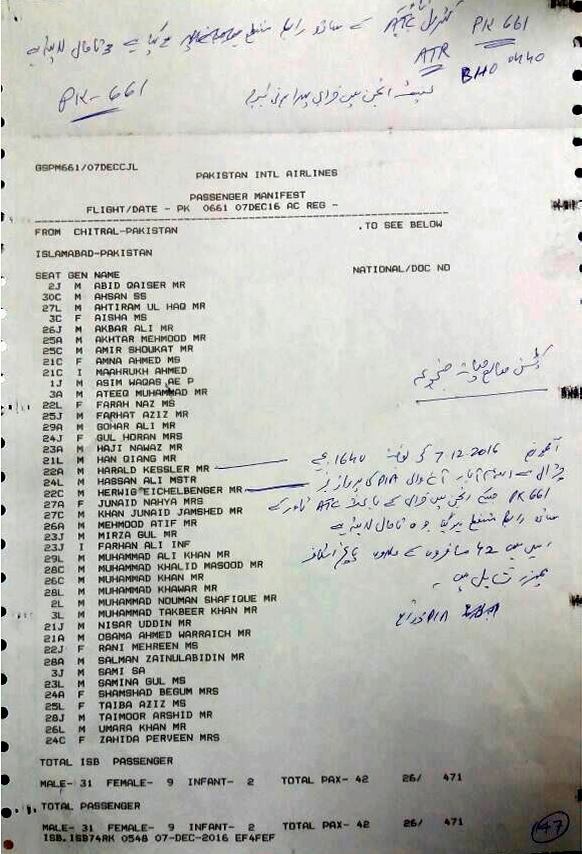 کنٹرول ATC کے ساتھ رابطہ منقطع ہو گیا ہے
PK 661
ATR
BHO 0440
PK-661
GSPM661/07DECCJL
PAKISTAN INTL AIRLINES
PASSENGER MANIFEST
FLIGHT/DATE - PK 0661 07DEC16 AC REG -
FROM CHITRAL-PAKISTAN .TO SEE BELOW
ISLAMABAD-PAKISTAN
SEAT GEN NAME NATIONAL/DOC NO
2J M ABID QAISER MR
30C M AHSAN SS
27L M AHTIRAM UL HAQ MR
3C F AISHA MS
26J M AKBAR ALI MR
25A M AKHTAR MEHMOOD MR
25C M AMIR SHOUKAT MR
21C F AMNA AHMED MS
21C I MAAHRUKH AHMED
1J M ASIM WAQAS AE P
3A M ATEEQ MUHAMMAD MR
22L F FARAH NAZ MS
25J M FARHAT AZIZ MR
29A M GOHAR ALI MR
24J F GUL HORAN MRS
23A M HAJI NAWAZ MR
21L M HAN QIANG MR
22A M HARALD KESSLER MR
24L M HASSAN ALI MSTR
22C M HERWIG EICHELBENGER MR
27A F JUNAID NAHYA MRS
27C M KHAN JUNAID JAMSHED MR
26A M MEHMOOD ATIF MR
23J M MIRZA GUL MR
23J I FARHAN ALI INF
29L M MUHAMMAD ALI KHAN MR
28C M MUHAMMAD KHALID MASOOD MR
26C M MUHAMMAD KHAN MR
28L M MUHAMMAD KHAWAR MR
2L M MUHAMMAD NOUMAN SHAFIQUE MR
3L M MUHAMMAD TAKBEER KHAN MR
21J M NISAR UDDIN MR
21A M OSAMA AHMED WARRAICH MR
22J F RANI MEHREEN MS
28A M SALMAN ZAINULABIDIN MR
3J M SAMI SA
23L M SAMINA GUL MS
24A F SHAMSHAD BEGUM MRS
25L F TAIBA AZIZ MS
28J M TAIMOOR ARSHID MR
26L M UMARA KHAN MR
24C F ZAHIDA PERVEEN MRS
7-12-2016 کو 1640 بجے
PK 661
42 مسافروں کے علاوہ
TOTAL ISB PASSENGER
MALE- 31 FEMALE- 9 INFANT- 2 TOTAL PAX- 42 26/ 471
TOTAL PASSENGER
MALE- 31 FEMALE- 9 INFANT- 2 TOTAL PAX- 42 26/ 471
ISB.ISB74RK 0548 07-DEC-2016 EF4FEF
47